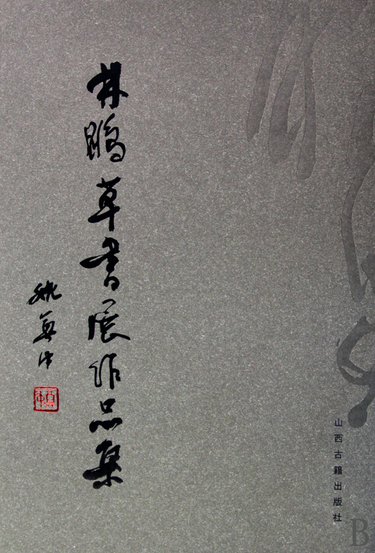 林鹏草书展作品集
姚奠中
山西古籍出版社
B